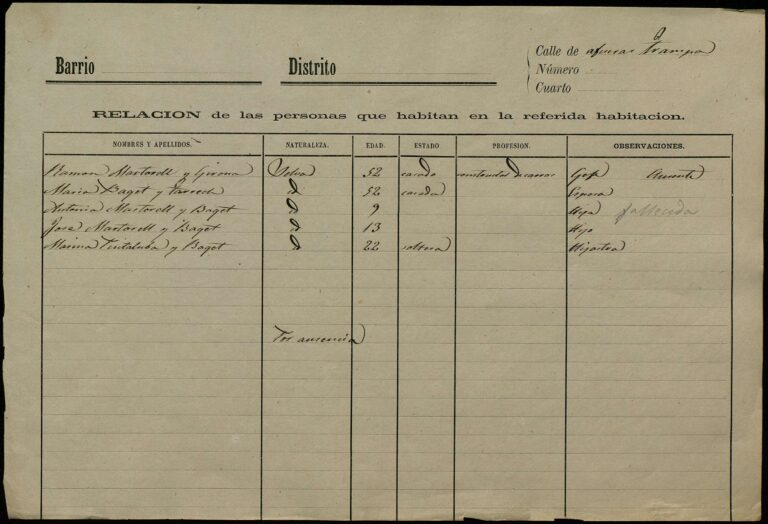 Calle de afueras Trampa
Barrio Distrito Número
Cuarto
RELACION de las personas que habitan en la referida habitacion.
NOMBRES Y APELLIDOS. NATURALEZA. EDAD. ESTADO PROFESION. OBSERVACIONES.
Ramon Martorell y Girona Selva 52 casado constructor de carros Gefe Ausente
Maria Baget y 52 casada Esposa
Antonia Martorell y Baget id 9 Hija fallecida
José Martorell y Baget id 13 Hijo
Maria y Baget id 22 soltera Hijastra
Por ausencia